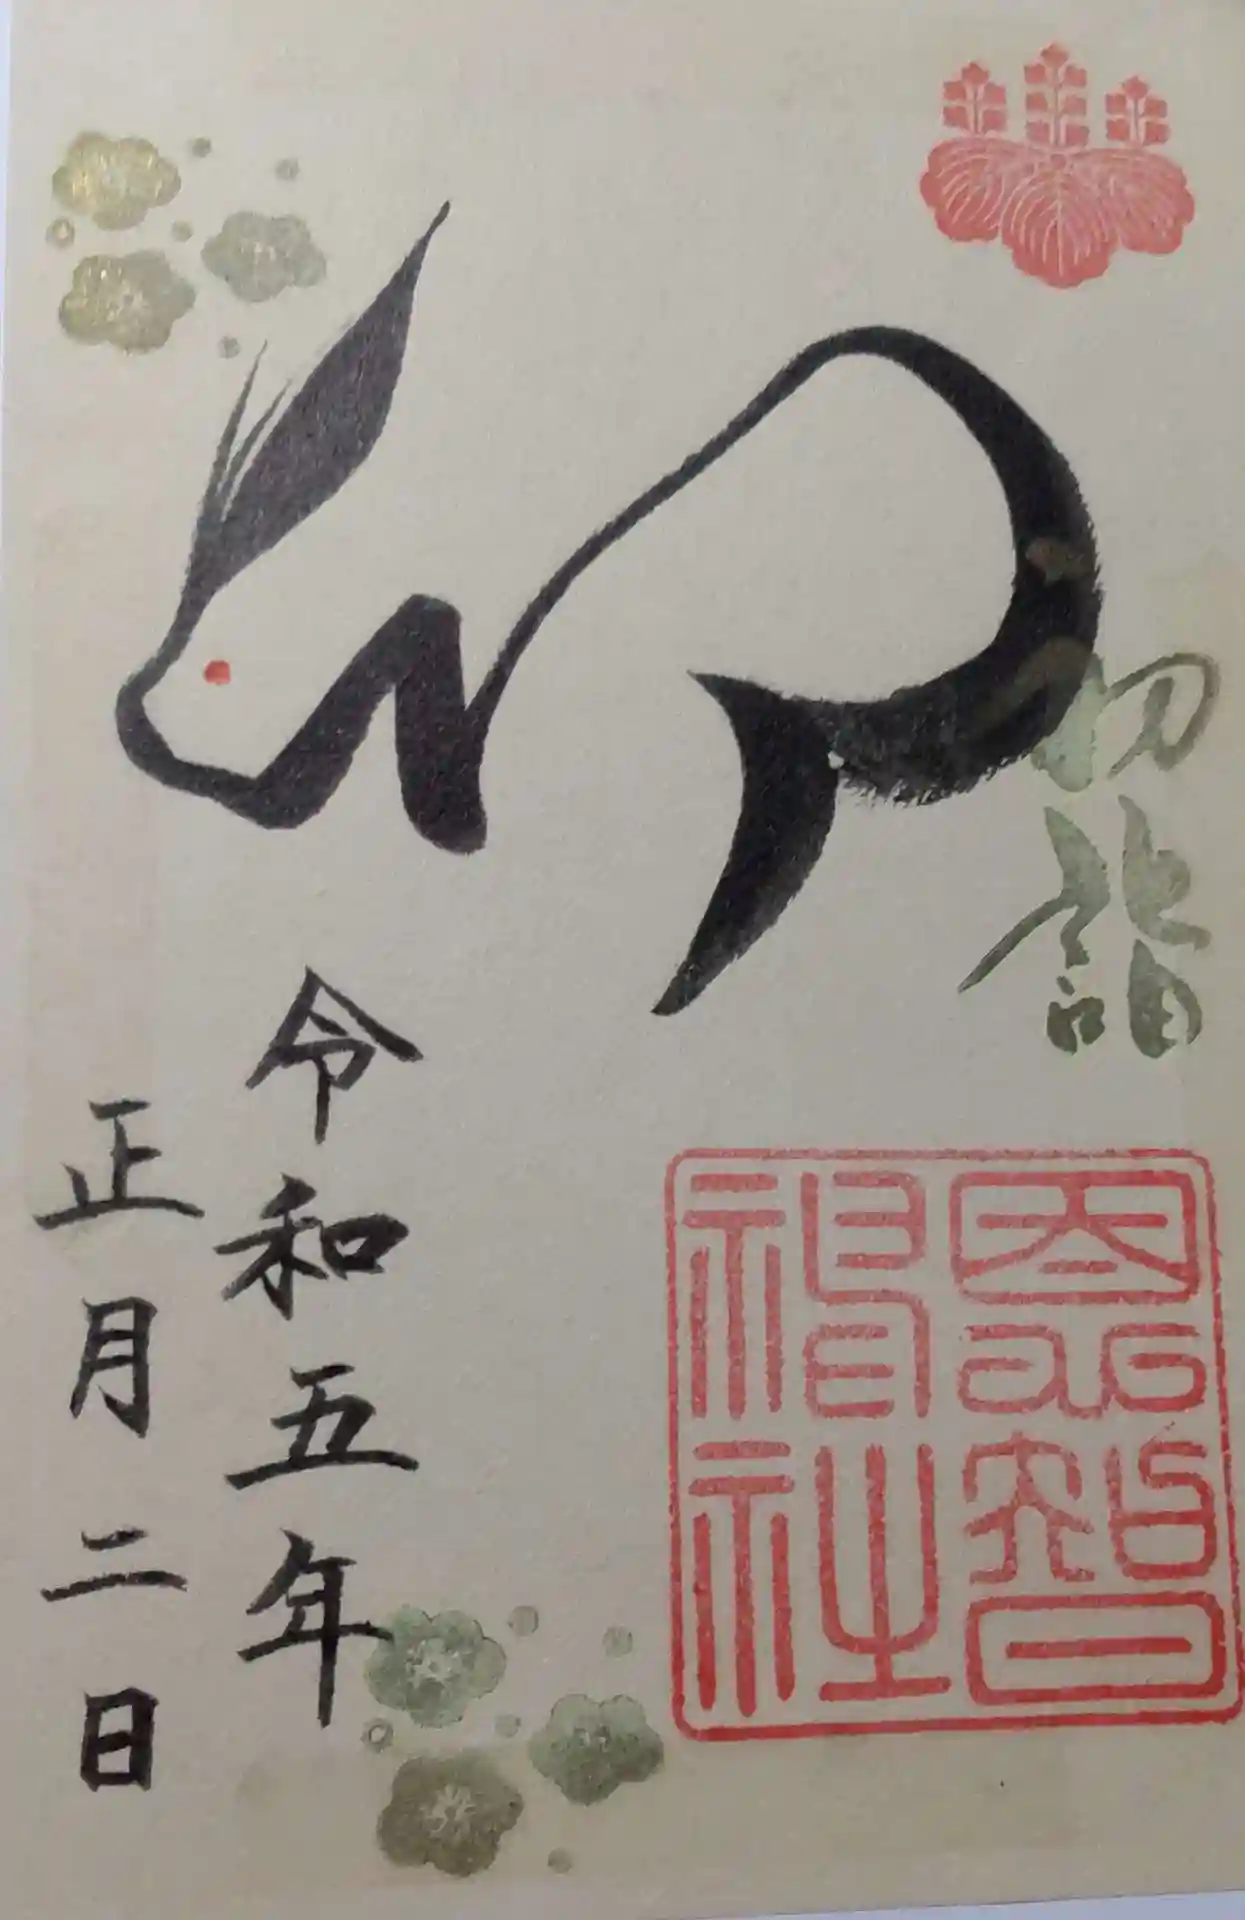 初詣
卯
恩智
神社
令和五年
正月二日